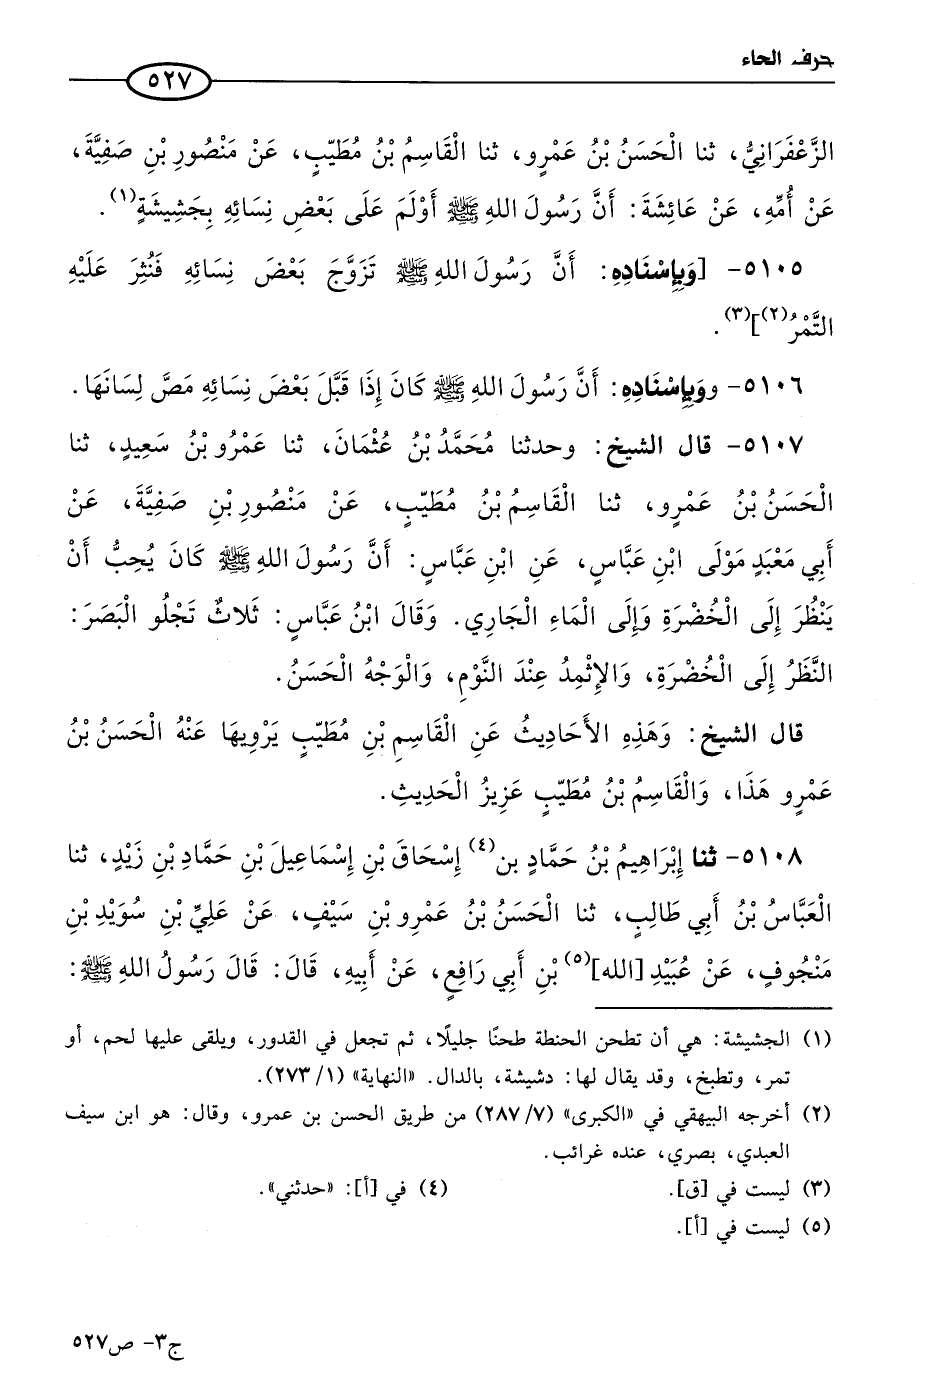 حرف الحاء
٥٢٧
الزَّعْفَرَانِيُّ، ثنا الْحَسَنُ بْنُ عَمْرٍو، ثنا الْقَاسِمُ بْنُ مُطَيّبٍ، عَنْ مَنْصُورِ بْنِ صَفِيَّةَ،
عَنْ أُمِّهِ، عَنْ عَائِشَةَ: أَنَّ رَسُولَ اللهِ ﷺ أَوْلَمَ عَلَى بَعْضِ نِسَائِهِ بِجَشِيشَةٍ(١).
٥١٠٥- [وَبِإِسْنَادِهِ: أَنَّ رَسُولَ اللهِ ﷺ تَزَوَّجَ بَعْضَ نِسَائِهِ فَنُثِرَ عَلَيْهِ
التَّمْرُ(٢)](٣).
٥١٠٦- ووَبِإِسْنَادِهِ: أَنَّ رَسُولَ اللهِ ﷺ كَانَ إِذَا قَبَّلَ بَعْضَ نِسَائِهِ مَصَّ لِسَانَهَا.
٥١٠٧- قال الشيخ: وحدثنا مُحَمَّدُ بْنُ عُثْمَانَ، ثنا عَمْرُو بْنُ سَعِيدٍ، ثنا
الْحَسَنُ بْنُ عَمْرٍو، ثنا الْقَاسِمُ بْنُ مُطَيّبٍ، عَنْ مَنْصُورِ بْنِ صَفِيَّةَ، عَنْ
أَبِي مَعْبَدٍ مَوْلَى ابْنِ عَبَّاسٍ، عَنِ ابْنِ عَبَّاسٍ: أَنَّ رَسُولَ اللهِ ﷺ كَانَ يُحِبُّ أَنْ
يَنْظُرَ إِلَى الْخُضْرَةِ وَإِلَى الْمَاءِ الْجَارِي. وَقَالَ ابْنُ عَبَّاسٍ: ثَلاثٌ تَجْلُو الْبَصَرَ:
النَّظَرُ إِلَى الْخُضْرَةِ، وَالإِثْمِدُ عِنْدَ النَّوْمِ، وَالْوَجْهُ الْحَسَنُ.
قال الشيخ: وَهَذِهِ الأَحَادِيثُ عَنِ الْقَاسِمِ بْنِ مُطَيّبٍ يَرْوِيهَا عَنْهُ الْحَسَنُ بْنُ
عَمْرٍو هَذَا، وَالْقَاسِمُ بْنُ مُطَيّبٍ عَزِيزُ الْحَدِيثِ.
٥١٠٨- ثنا إِبْرَاهِيمُ بْنُ حَمَّادِ بن(٤) إِسْحَاقَ بْنِ إِسْمَاعِيلَ بْنِ حَمَّادِ بْنِ زَيْدٍ، ثنا
الْعَبَّاسُ بْنُ أَبِي طَالِبٍ، ثنا الْحَسَنُ بْنُ عَمْرِو بْنِ سَيْفٍ، عَنْ عَلِيِّ بْنِ سُوَيْدِ بْنِ
مَنْجُوفٍ، عَنْ عُبَيْدِ [الله](٥) بْنِ أَبِي رَافِعٍ، عَنْ أَبِيهِ، قَالَ: قَالَ رَسُولُ اللهِ ﷺ:
(١) الجشيشة: هي أن تطحن الحنطة طحنًا جليلًا، ثم تجعل في القدور، ويلقى عليها لحم، أو
تمر، وتطبخ، وقد يقال لها: دشيشة، بالدال. «النهاية» (١/ ٢٧٣).
(٢) أخرجه البيهقي في «الكبرى» (٧/ ٢٨٧) من طريق الحسن بن عمرو، وقال: هو ابن سيف
العبدي، بصري، عنده غرائب.
(٣) ليست في [ق]. (٤) في [أ]: «حدثني».
(٥) ليست في [أ].
ج٣- ص٥٢٧